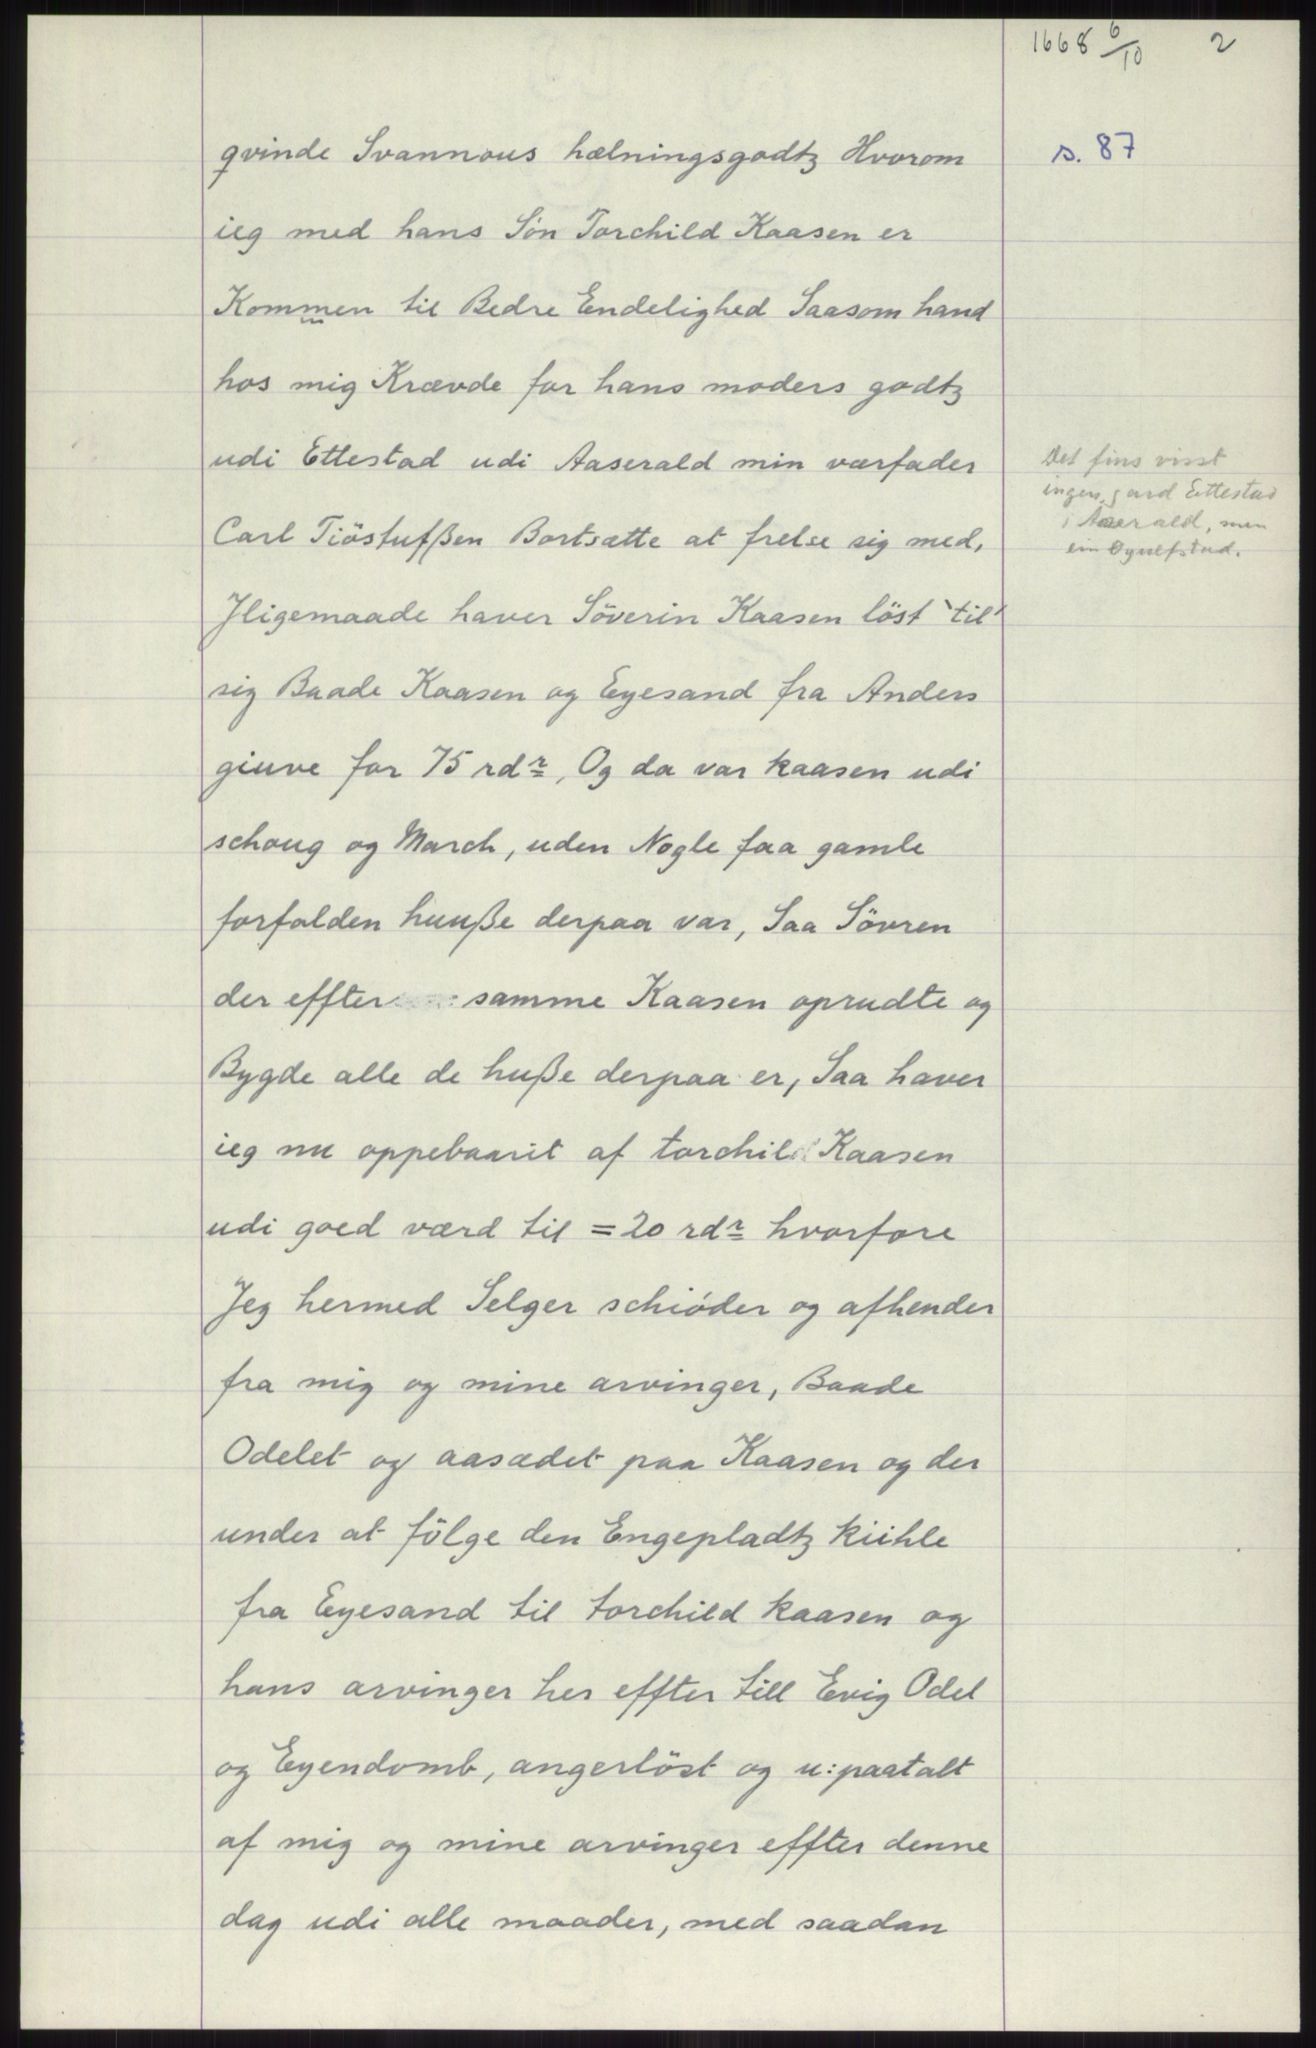 1668 6/10 2
s. 87
qvinde Svannous hælningsgodtz Hvorom
ieg med hans Sön Torchild Kaasen er
Kommen til Bedre Endelighed Saasom hand
hos mig Krævde for hans moders godtz
udi Ettestad udi Aaserald min værfader
Carl Tiöstufßen Bortsætte at frelse sig med,
Jligemaade haver Söverin Kaasen löst `til´
sig Baade Kaasen og Eyesand fra Anders
giuve for 75 rdr, Og da var kaasen udi
schoug og March, uden Nogle faa gamle
forfalden huuße derpaa var, Saa Sövren
der effter samme Kaasen oprudte og
Bygde alle de huße derpaa er, Saa haver
ieg nu oppebaarit af torchild Kaasen
udi goed værd til = 20 rdr hvorfore
Jeg hermed Selger schiöder og afhender
fra mig og mine arvinger, Baade
Odelet og aasædet paa Kaasen og der
under at fölge den Engepladtz kiihle
fra Eyesand til torchild kaasen og
hans arvinger her effter till Evig Odel
og Eyendomb, angerlöst og u:paatalt
af mig og mine arvinger effter denne
dag udi alle maader, med saadan
Det fins visst
ingen gard Ettestad
i Aaserald, men
ein Øyulfstad.